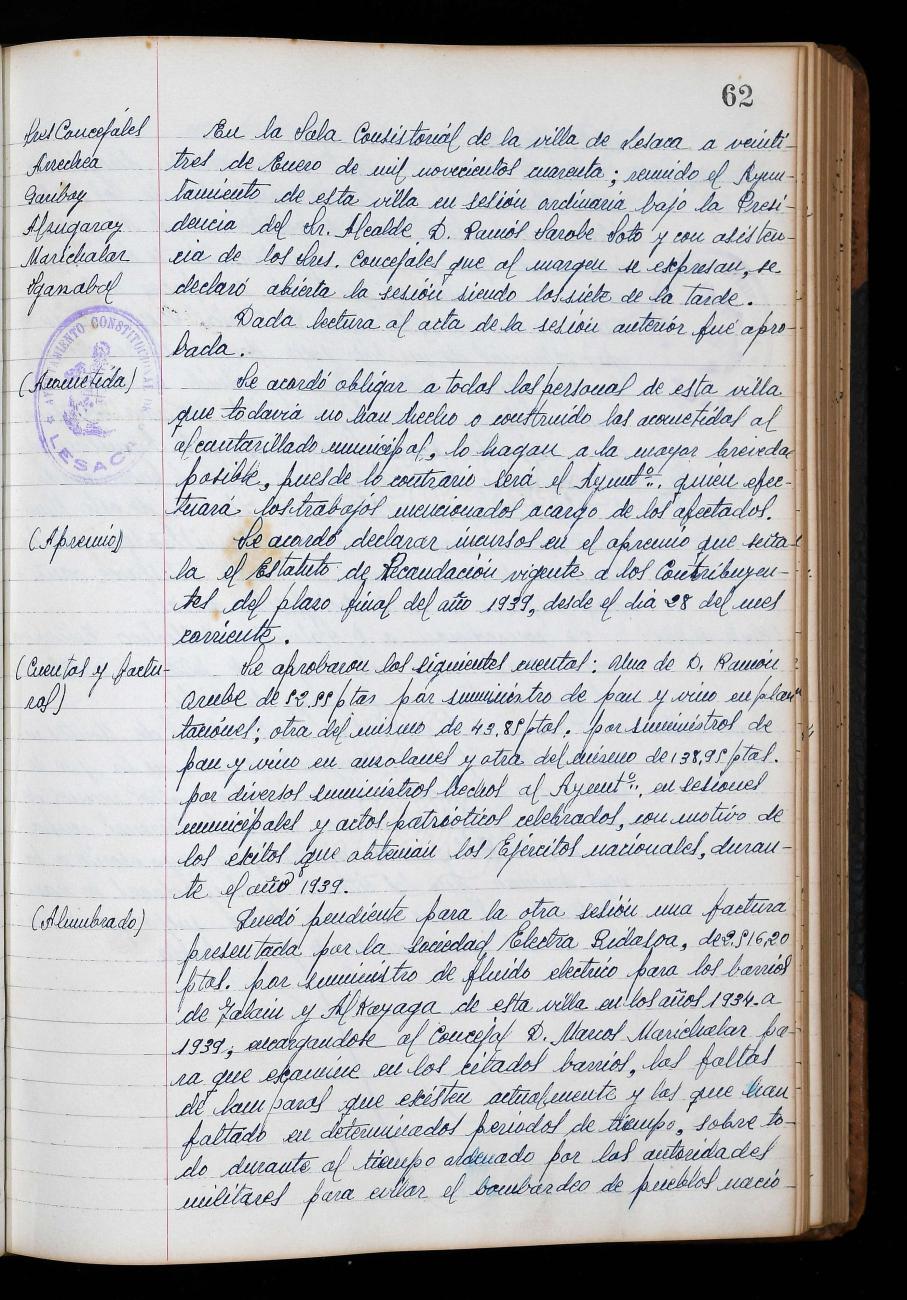 62
Sres Concejales
Arrechea
Garibay
Alzugaray
Marichalar
Iganabal
En la Sala Consistorial de la villa de Lesaca a veinti-
tres de Enero de mil novecientos cuarenta; reunido el Ayun-
tamiento de esta villa en sesión ordinaria bajo la Presi-
dencia del Sr. Alcalde D. Ramón Sarobe Soto y con asisten-
cia de los Sres. Concejales que al margen se expresan, se
declaró abierta la sesión siendo las siete de la tarde.
Dada lectura al acta de la sesión anterior fué apro-
bada.
AYUNTAMIENTO CONSTITUCIONAL DE
LESACA
(Acometida)
Se acordó obligar a todas las personas de esta villa
que todavia no han hecho o construido las acometidas al
alcantarillado municipal, lo hagan a la mayor breveda
posible, pues de lo contrario será el Aymtº., quien efec-
tuará los trabajos mencionados a cargo de los afectados.
(Apremio)
Se acordó declarar incursos en el apremio que seña-
la el Estatuto de Recaudación vigente a los Contribuyen-
tes del plazo final del año 1939, desde el dia 28 del mes
corriente.
(Cuentas y factu-
ras)
Se aprobaron las siguientes cuentas: Una de D. Ramón
de 52,95 ptas por suministro de pan y vino en plan
taciones; otra del mismo de 43,85 ptas. por suministros de
pan y vino en auzolanes y otra del mismo de 138,95 ptas.
por diversos suministros hechos al Aymtº., en sesiones
municipales y actos patrooticos celebrados, con motivo de
los exitos que obtenian los Ejércitos nacionales, duran-
te el año 1939.
(Alumbrado)
Quedó pendiente para la otra sesión una factura
presentada por la Sociedad Electra Bidasoa, de 2.516,20
ptas. por suministro de fluido electrico para los barrios
de Zalain y Alkayaga de esta villa en los años 1934 a
1939; encargandose al Concejal D. Marcos Marichalar pa-
ra que examine en los citados barrios, las faltas
de lamparas que existen actualmente y las que han
faltado en determinados periodos de tiempo, sobre to-
do durante al tiempo ordenado por las autoridades
militares para evitar el bombardeo de pueblos nacio-